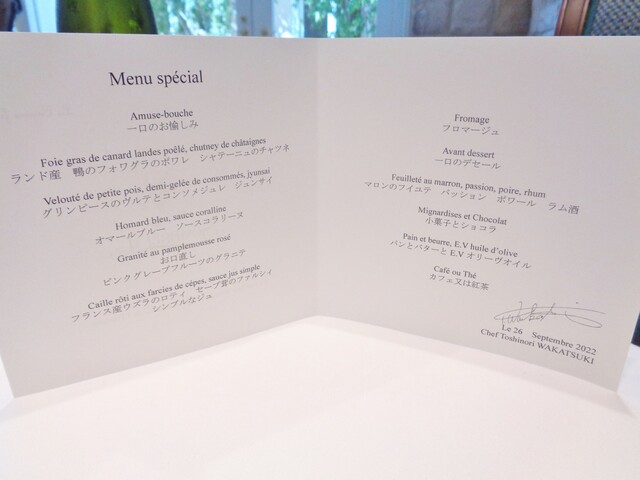 Menu spécial
Amuse-bouche
一口のお愉しみ
Foie gras de canard landes poêlé, chutney de châtaignes
ランド産 鴨のフォワグラのポワレ シャテーニュのチャツネ
Velouté de petite pois, demi-gelée de consommés, jyunsai
グリンピースのヴルテとコンソメジュレ ジュンサイ
Homard bleu, sauce coralline
オマールブルー ソースコラリーヌ
Granité au pamplemousse rosé
お口直し
ピンクグレープフルーツのグラニテ
Caille rôti aux farcies de cèpes, sauce jus simple
フランス産ウズラのロティ セープ茸のファルシィ
シンプルなジュ
Fromage
フロマージュ
Avant dessert
一口のデセール
Feuilleté au marron, passion, poire, rhum
マロンのフイユテ パッション ポワール ラム酒
Mignardises et Chocolat
小菓子とショコラ
Pain et beurre, E.V huile d'olive
パンとバターと E.V オリーヴオイル
Café ou Thé
カフェ又は紅茶
Le 26 Septembre 2022
Chef Toshinori WAKATSUKI